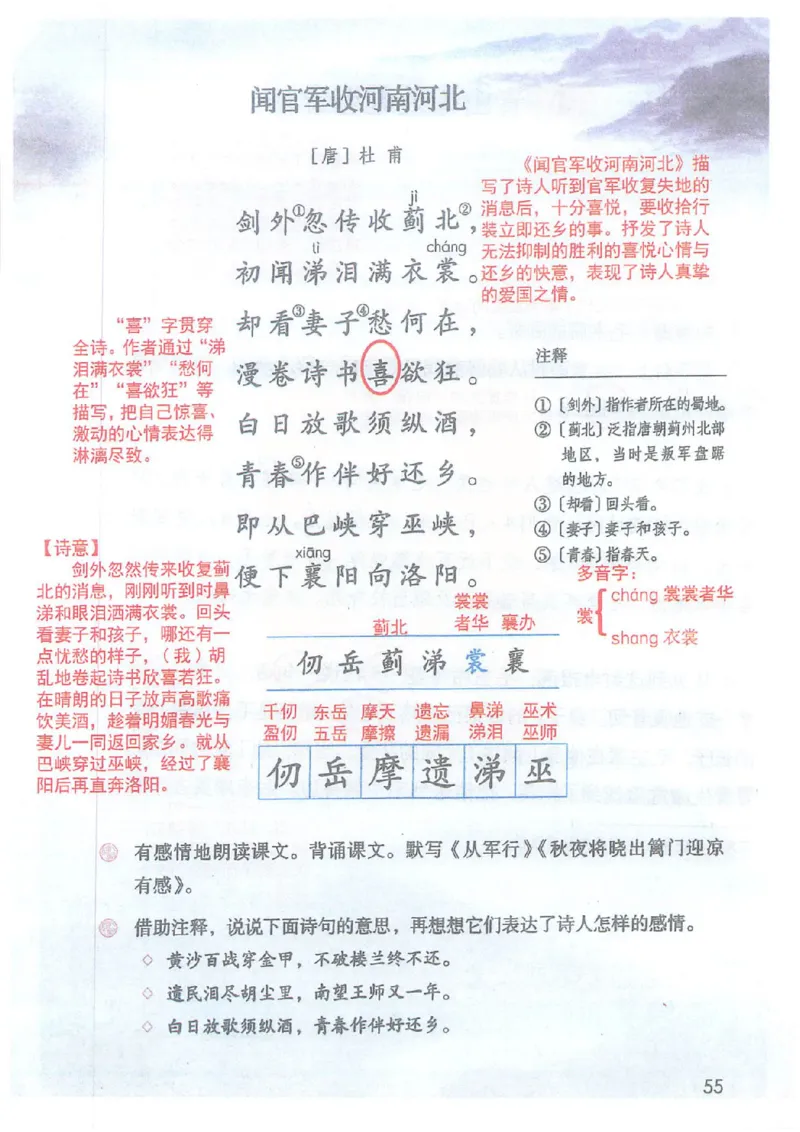 闻官军收河南河北
［唐］杜 甫
jì
剑外①忽传收蓟北②，
tì cháng
初闻涕泪满衣裳。
却看③妻子④愁何在，
漫卷诗书喜欲狂。
白日放歌须纵酒，
青春⑤作伴好还乡。
即从巴峡穿巫峡，
xiāng
便下襄阳向洛阳。
《闻官军收河南河北》描
写了诗人听到官军收复失地的
消息后，十分喜悦，要收拾行
装立即还乡的事。抒发了诗人
无法抑制的胜利的喜悦心情与
还乡的快意，表现了诗人真挚
的爱国之情。
“喜”字贯穿
全诗。作者通过“涕
泪满衣裳”“愁何
在”“喜欲狂”等
描写，把自己惊喜、
激动的心情表达得
淋漓尽致。
注释
①〔剑外〕指作者所在的蜀地。
②〔蓟北〕泛指唐朝蓟州北部
地区，当时是叛军盘踞
的地方。
③〔却看〕回头看。
④〔妻子〕妻子和孩子。
⑤〔青春〕指春天。
【诗意】
剑外忽然传来收复蓟
北的消息，刚刚听到时鼻
涕和眼泪洒满衣裳。回头
看妻子和孩子，哪还有一
点忧愁的样子，（我）胡
乱地卷起诗书欣喜若狂。
在晴朗的日子放声高歌痛
饮美酒，趁着明媚春光与
妻儿一同返回家乡。就从
巴峡穿过巫峡，经过了襄
阳后再直奔洛阳。
多音字：
裳
cháng 裳裳者华
shang 衣裳
裳裳
蓟北 者华 襄办
仞 岳 蓟 涕 裳 襄
千仞 东岳 摩天 遗忘 鼻涕 巫术
盈仞 五岳 摩擦 遗漏 涕泪 巫师
仞 岳 摩 遗 涕 巫
有感情地朗读课文。背诵课文。默写《从军行》《秋夜将晓出篱门迎凉
有感》。
借助注释，说说下面诗句的意思，再想想它们表达了诗人怎样的感情。
◇ 黄沙百战穿金甲，不破楼兰终不还。
◇ 遗民泪尽胡尘里，南望王师又一年。
◇ 白日放歌须纵酒，青春作伴好还乡。
55